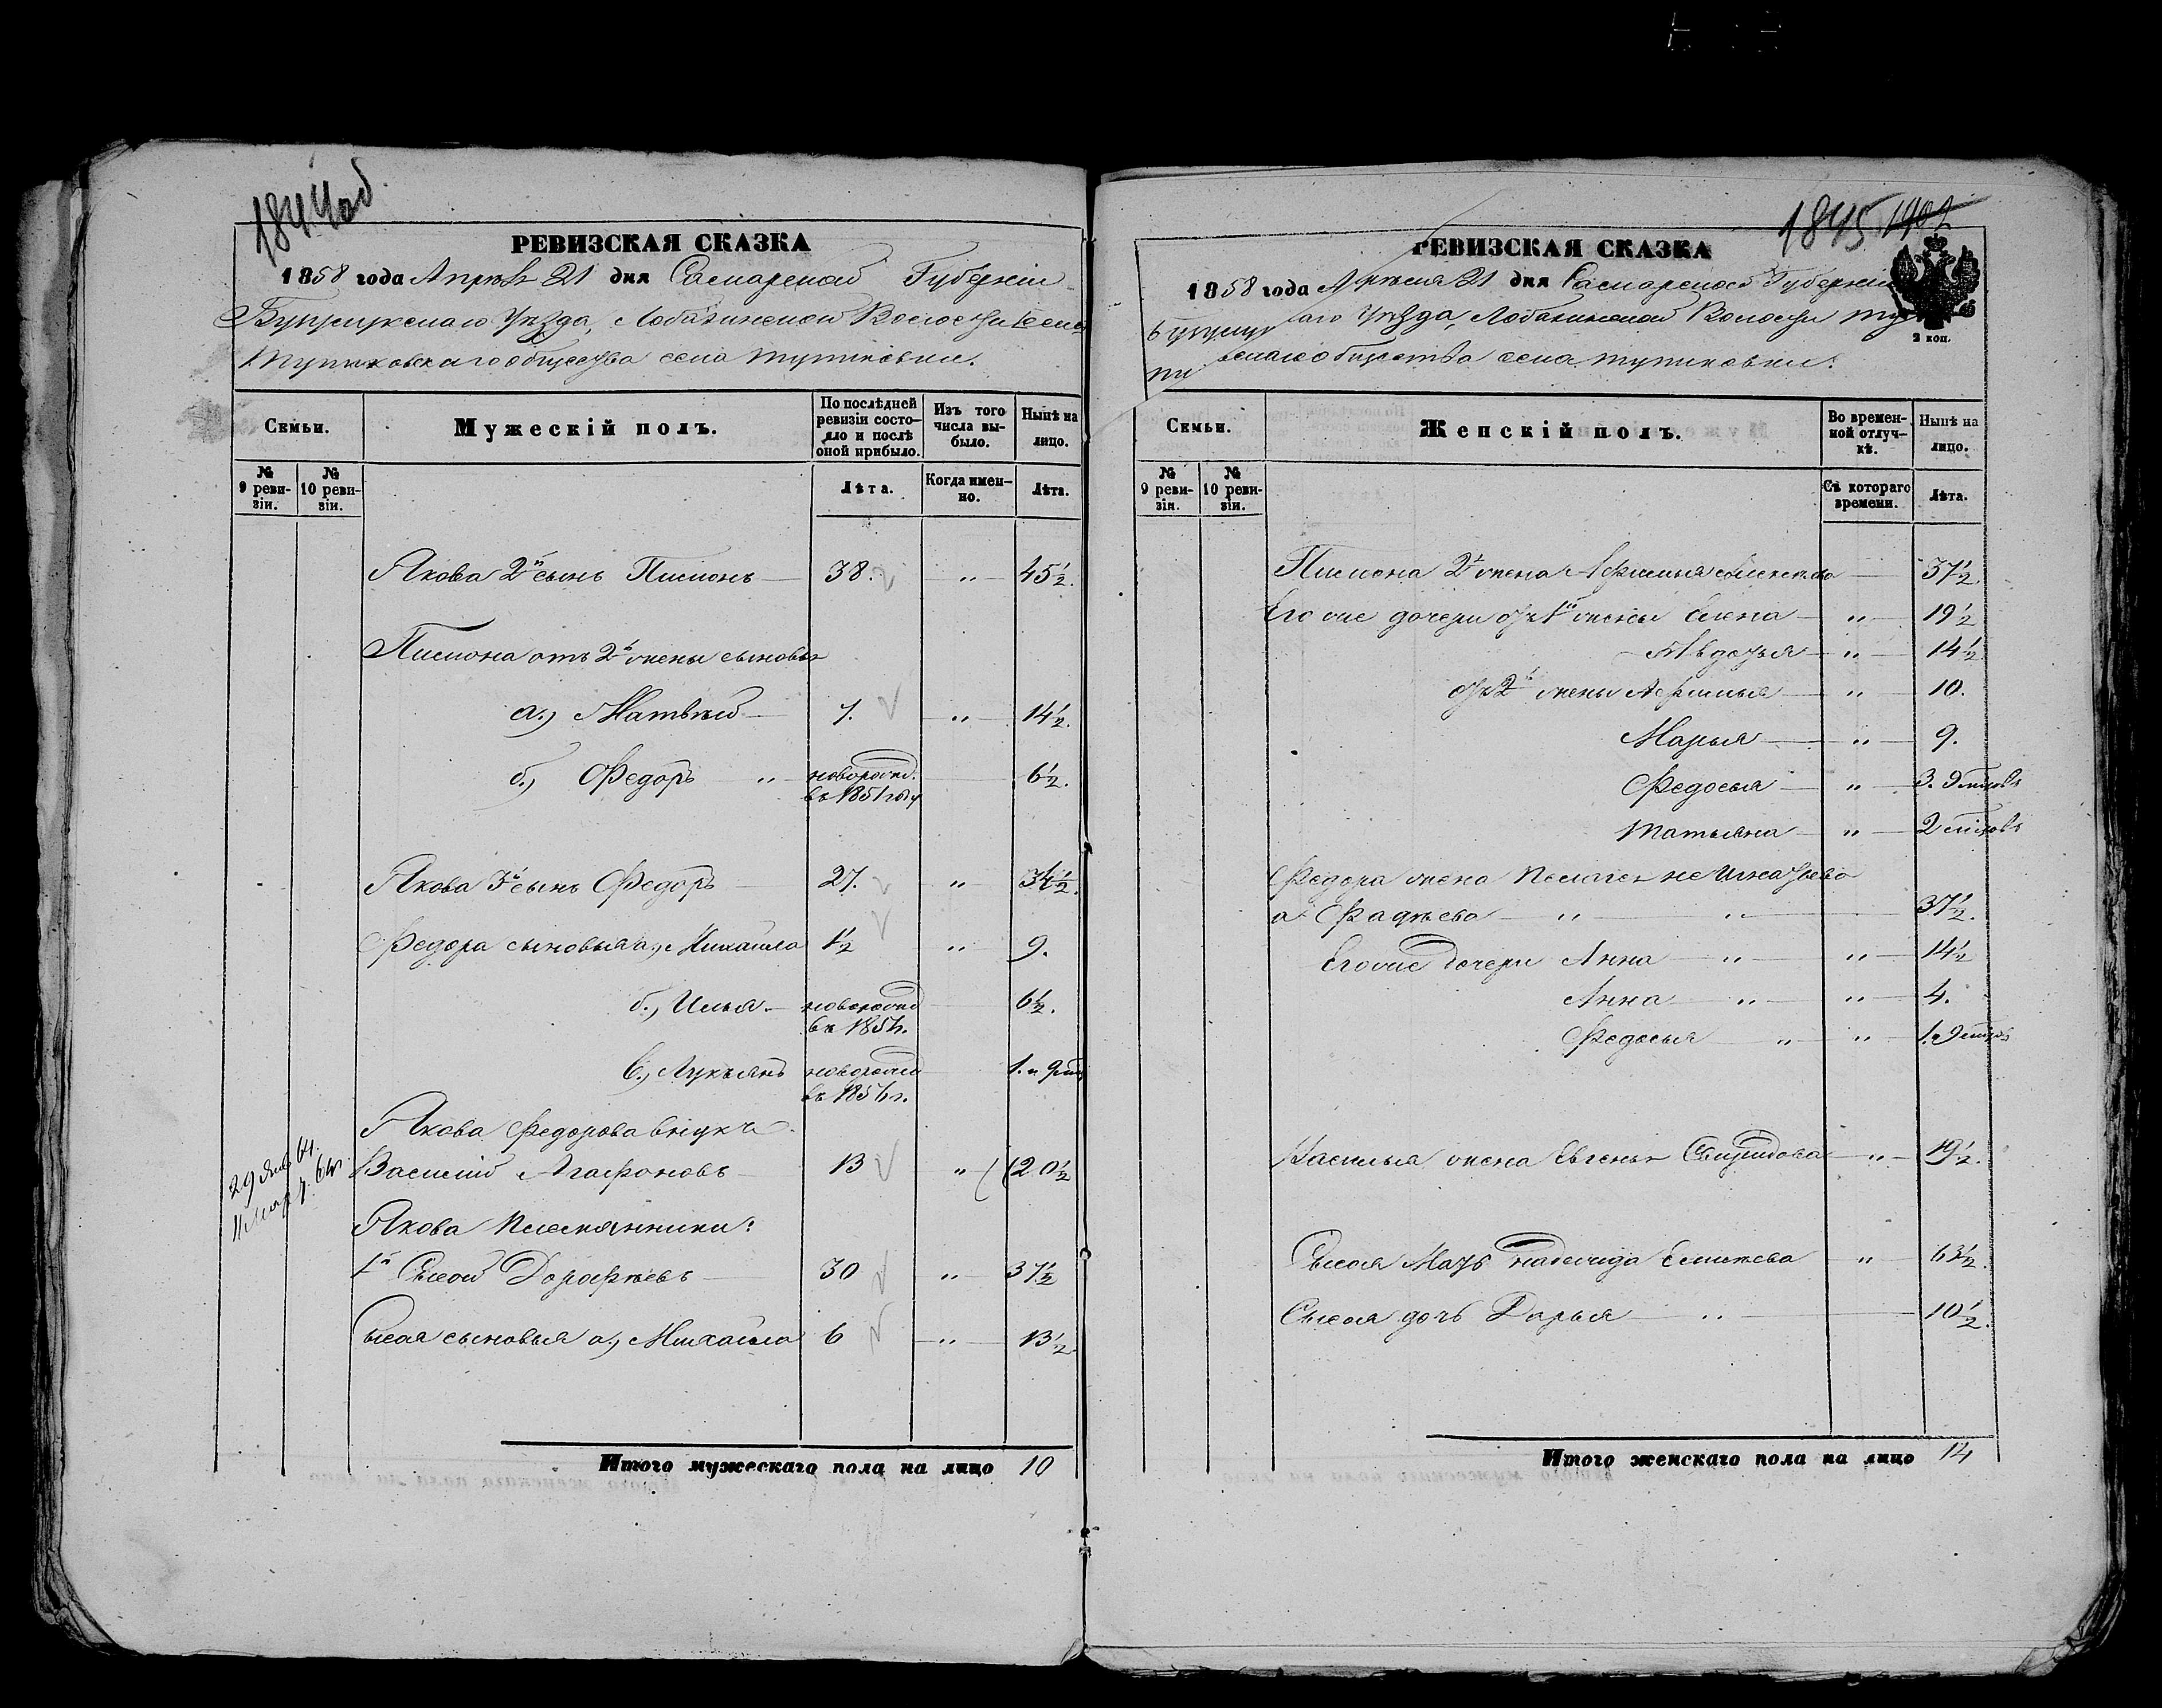 1844 об.
РЕВИЗСКАЯ СКАЗКА
1858 года Апреля 21 дня Самарской Губерніи
Бузулукскаго Уѣзда, Лобазинской Волости села
общества села
Семьи.
Мужескій полъ.
По послѣдней ревизіи состояло и послѣ оной прибыло.
Изъ того числа выбыло.
Нынѣ на лицо.
№ 9 ревизіи.
№ 10 ревизіи.
Лѣта.
Когда именно.
Лѣта.
Якова 2й сынъ Пименъ — 38. „ 45½.
Пимена отъ 2й жены сыновья
а.) Матвѣй — 7. „ 14½.
б.) Федоръ „ новорожд. въ 1851 году 6½.
Якова 3й сынъ Федоръ — 27. „ 34½.
Федора сыновья а.) Михайла 1½ „ 9.
б.) Илья. — новорожд въ 1851г. 6½.
в.) Лукьянъ новорожд въ 1856г. 1. и 9 мѣс
Якова Федорова внукъ
Василій Агафоновъ — 13 „ 20½
29 64.
64.
Якова племянники:
1й Сысой Дорофѣевъ — 30 „ 37½
Сысоя сыновья а.) Михайла 6 — „ — 13½
Итого мужескаго пола на лицо 10
1845 1902
РЕВИЗСКАЯ СКАЗКА
1858 года Апреля 21 дня Самарской Губерніи
Бузулукскаго Уѣзда, Лобазинской Волости
общества села
2 коп.
Семьи.
Женскій полъ.
Во временной отлучкѣ.
Нынѣ на лицо.
№ 9 ревизіи.
№ 10 ревизіи.
Съ котораго времени.
Лѣта.
Пимена 2я жена Афимья — 37½.
Его же дочери отъ 1й жены Елена — „ — 19½
Авдотья — „ — 14½
отъ 2й жены Афимья — „ — 10.
Марья — „ — 9.
Федосья — „ — 3. 9 мѣсяцовъ
Татьяна — „ — 2 мѣсяцовъ
Федора жена Пелагея не Игнатьева
а Фадѣева — „ — „ — 37½.
Его же дочери Анна — „ — „ — 14½
Анна — „ — „ — 4.
Федосья „ — „ — 1. 9 мѣсяцовъ
Василья жена Евгенья — „ — 19½.
Сысоя Мать Надежида — „ — 63½.
Сысоя дочь Дарья — „ — 10½.
Итого женскаго пола на лицо 14